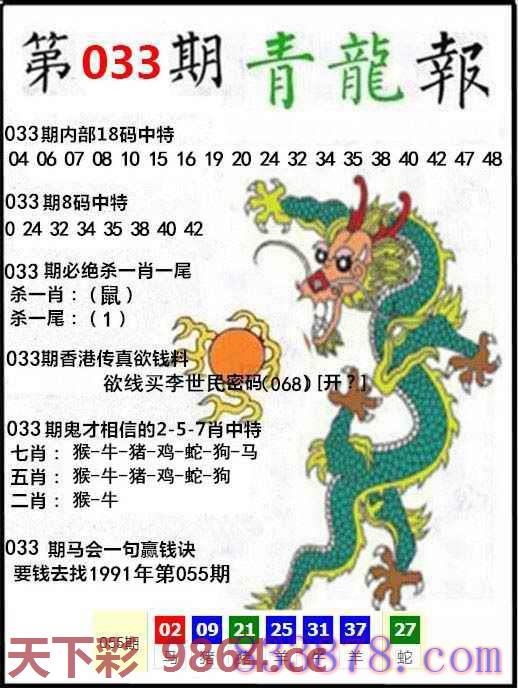 第033期青龍報
033期内部18码中特
04 06 07 08 10 15 16 19 20 24 32 34 35 38 40 42 47 48
033期8码中特
0 24 32 34 35 38 40 42
033 期必绝杀一肖一尾
杀一肖：（鼠）
杀一尾：（1）
033期香港传真欲钱料
欲线买李世民密码(068) [开？]
033期鬼才相信的2-5-7肖中特
七肖：猴-牛-猪-鸡-蛇-狗-马
五肖：猴-牛-猪-鸡-蛇-狗
二肖：猴-牛
033 期马会一句赢钱诀
要钱去找1991年第055期
055期 02 09 21 25 31 37 27
马 猪 猪 羊 牛 羊 蛇
天下彩 9864.cc